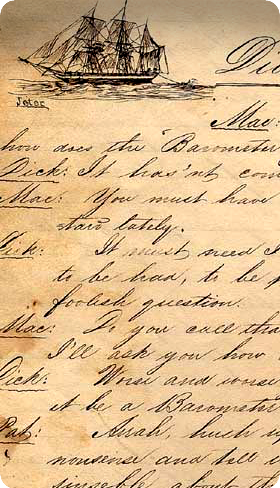 Mac:
how does the "Barometer
Dick: It has'nt com
Mac: You must have
lately.
It must need
to be had, to be
foolish question.
Mac: Do you call tha
I'll ask you how
Dick: Worse and worse
it be a Barometer
Pat: Arrah, hush
nonsense and tell
about th